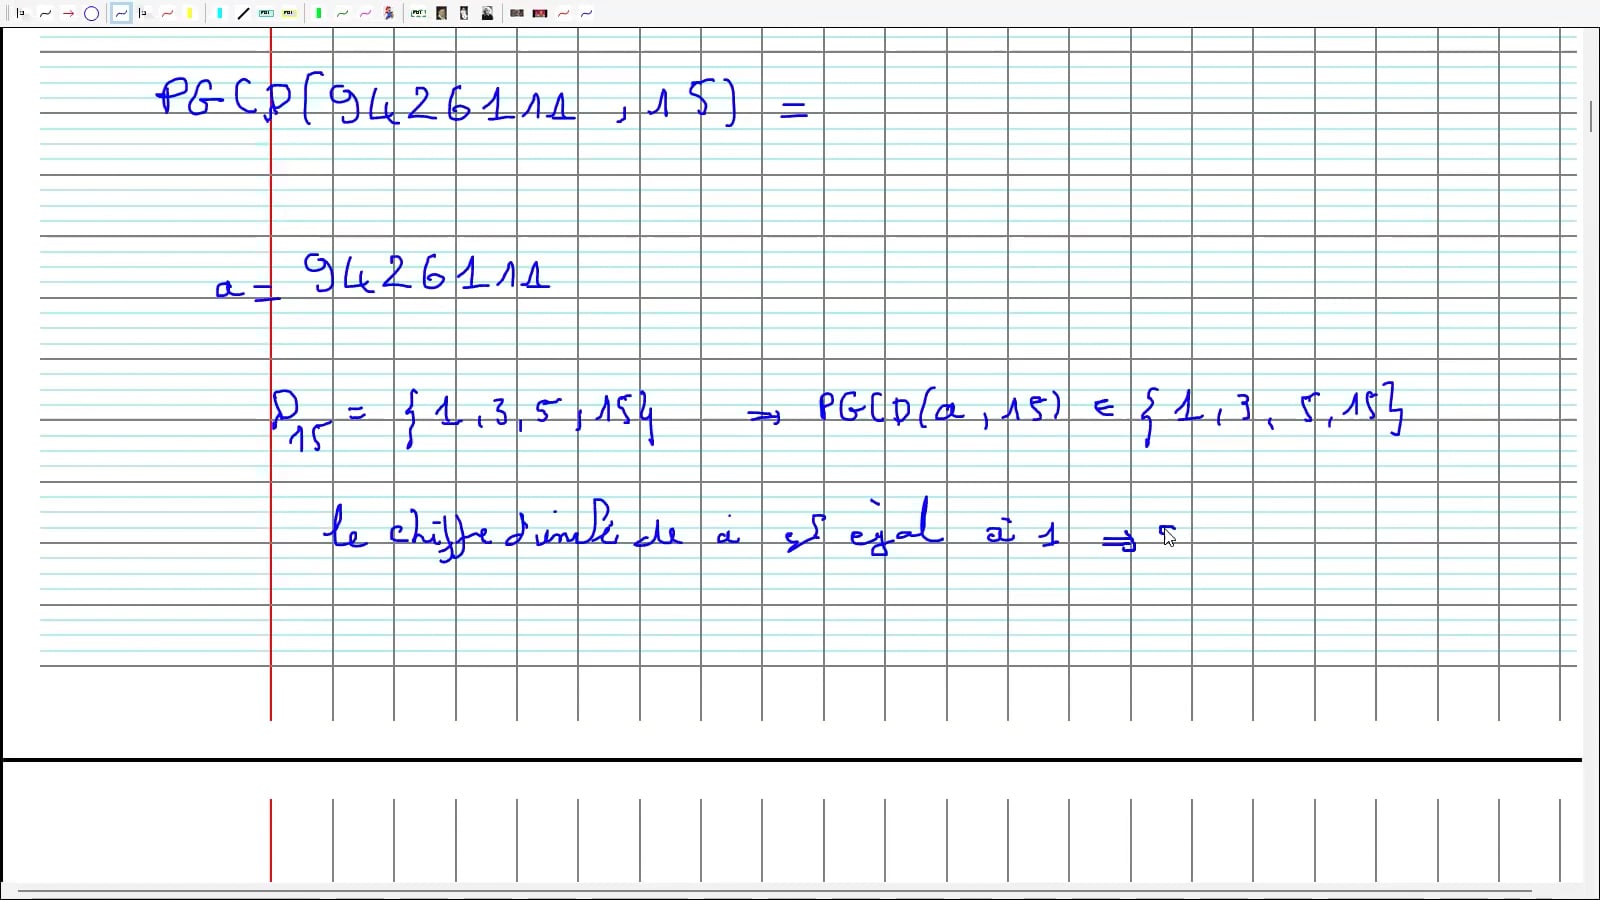 PGCD(9426111 , 15) =
a = 9426111
D15 = {1, 3, 5, 15} → PGCD(a, 15) ∈ {1, 3, 5, 15}
le chiffre d'unité de a est égal à 1 ⇒ 5